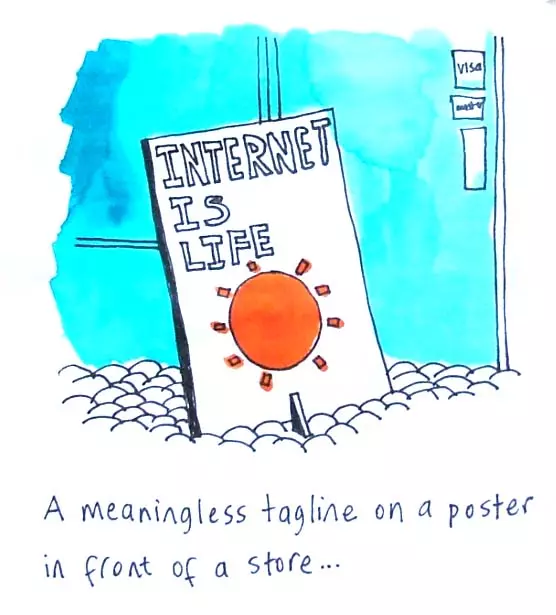 INTERNET
IS
LIFE
VISA
A meaningless tagline on a poster
in front of a store...